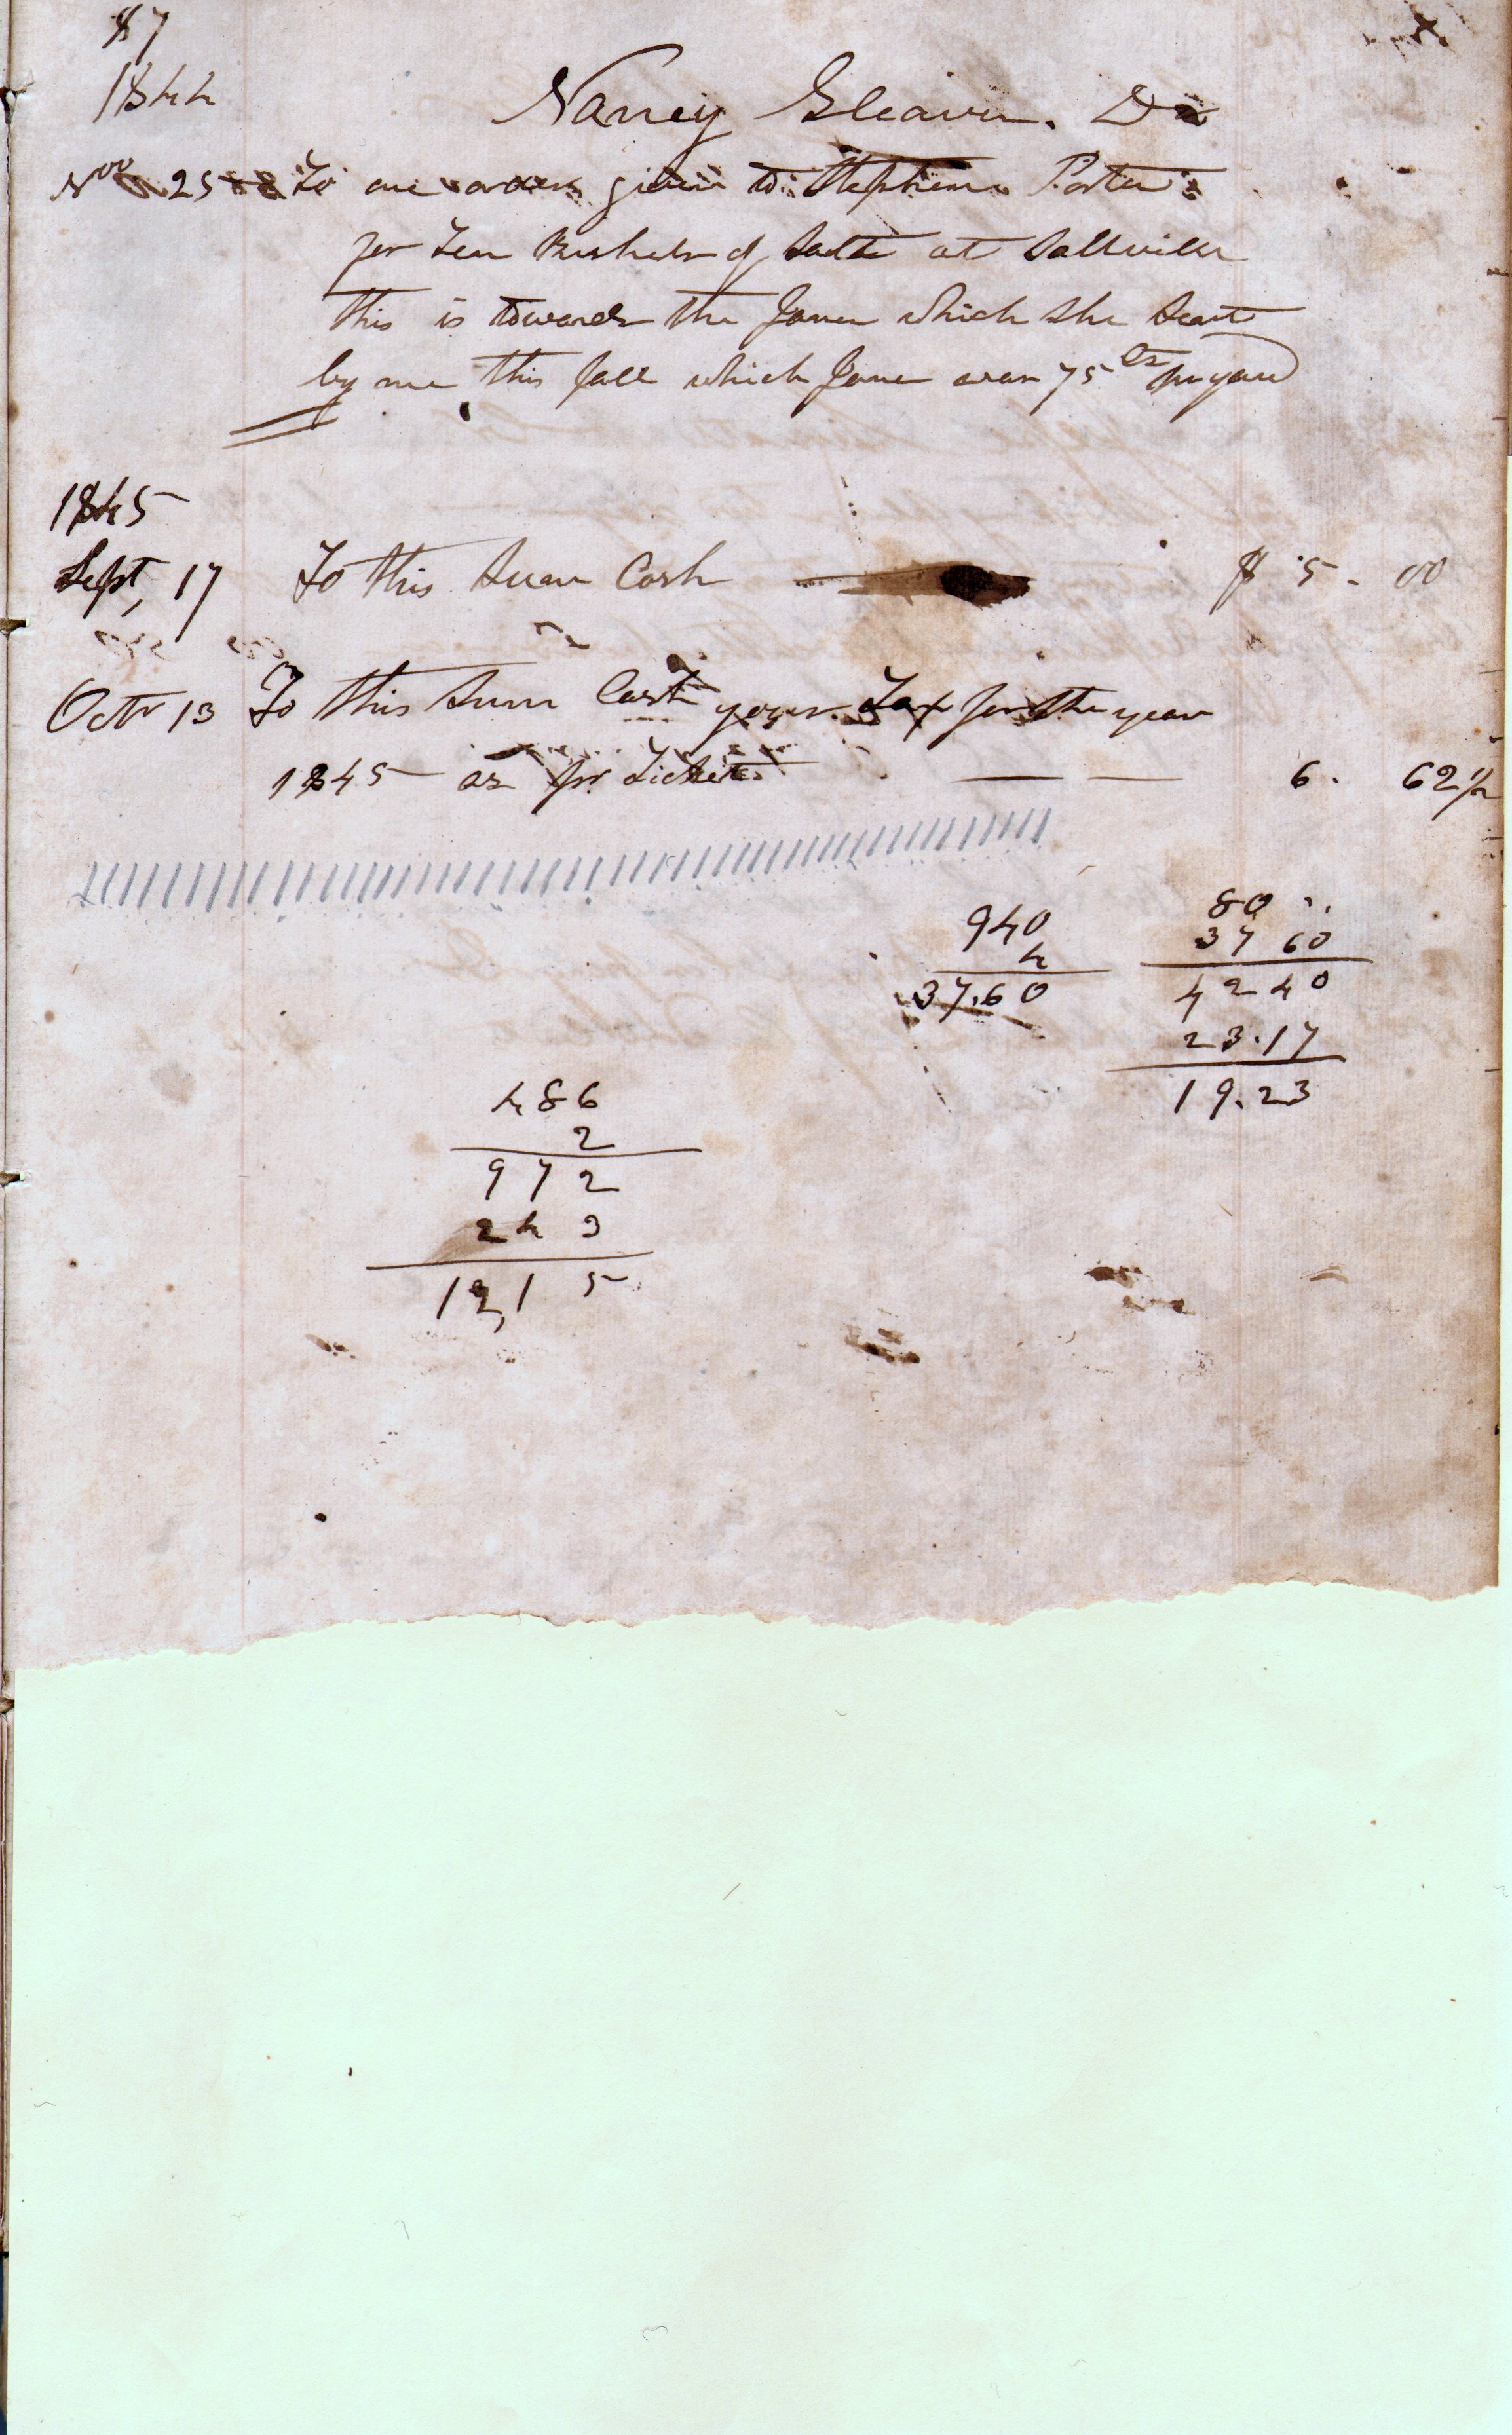 87
1844
Nancy Gleaves. Dr
Nov 25 To one order given to Stephen Porter
for Ten Bushels of Salt at Saltville
this is towards the Janes which she sent
by me this fall which Janes was 75 cts pr yard
1845
Sept, 17 To this Sum Cash $ 5 - 00
Octr 13 To this Sum Cash your Tax for the year
1845 as pr Ticket 6. 62 1/2
940
4
37.60
80
37 60
42 40
23.17
19.23
486
2
972
243
12,15